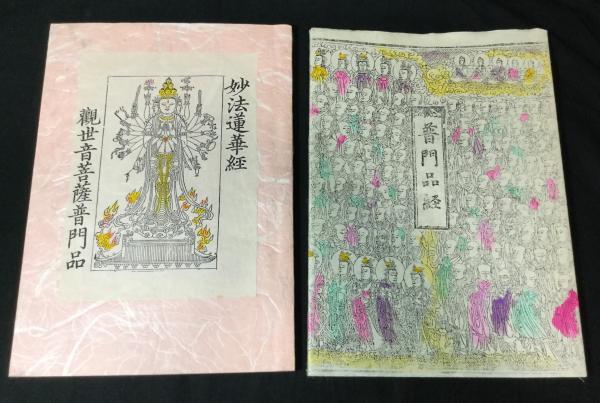 妙法蓮華經
觀世音菩薩普門品
普門品經